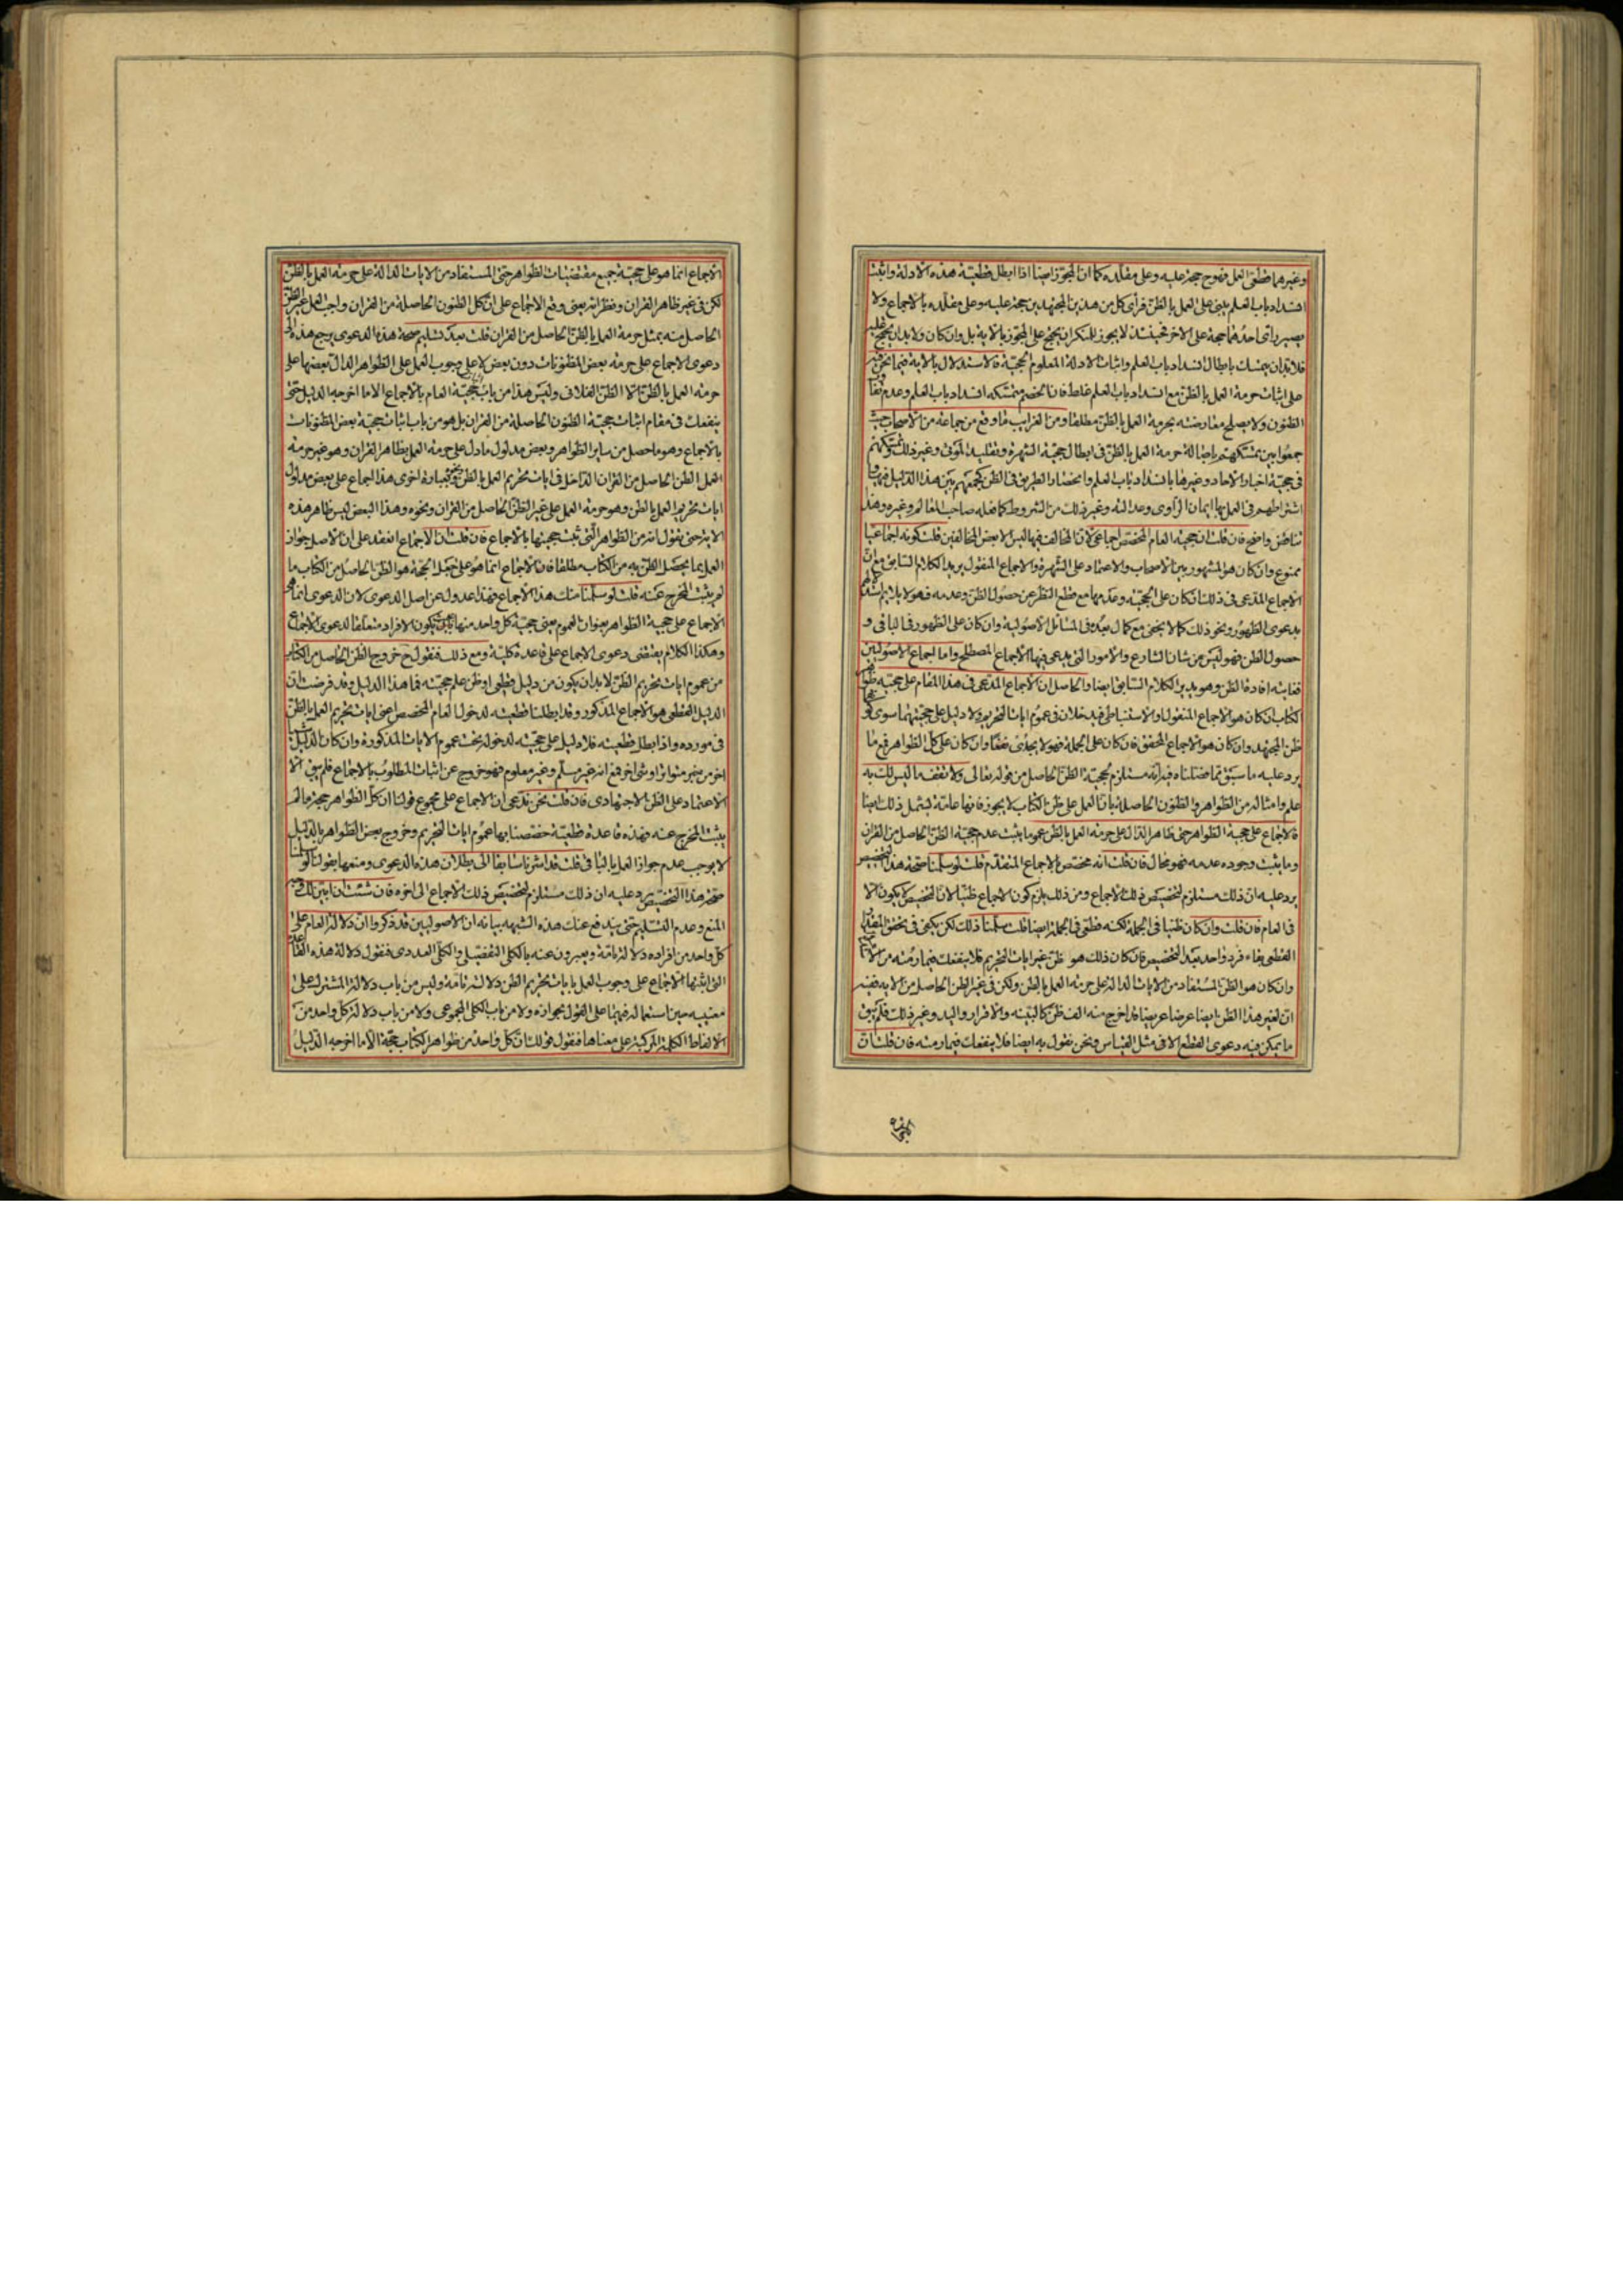 او غيرهما قطعى العمل فهو حجة عليه وعلى مقلده كما ان المجوز ايضا اذا ابطل قطعية هذه الادلة واثبت
انسداد باب العلم يبنى على العمل بالظن فرأى كل من هذين المجتهدين حجة عليه وعلى مقلده بالاجماع ولا
يصير رأى احدهما حجة على الاخر فحينئذ لا يجوز للمنكر ان يحتج على المجوز بالاية بل وان كان ولا بد ان يحتج عليه
فلابد ان يتمسك بابطال انسداد باب العلم واثبات الادلة المعلوم الحجية فالاستدلال بالاية فيما نحن فيه
على اثبات حرمة العمل بالظن مع انسداد باب العلم غلط فان الخصم متمسكه انسداد باب العلم وعدم بقاء
الظنون ولا يصلح معارضته بحرمة العمل بالظن مطلقا ومن الغرايب ما وقع من جماعة من الاصحاب حيث
جمعوا بين تمسكهم باصالة حرمة العمل بالظن فى ابطال حجية الشهرة وتقليد الموتى وغير ذلك وتمسكهم
فى حجية اخبار الاحاد وغيرها بانسداد باب العلم وانحصار الطريق فى الظن كجمعهم بين هذا الدليل
اشتراطهم فى العمل بها ايمان الراوى وعدالته وغير ذلك من الشروط كما فعله صاحب المعالم وغيره وهذا
تناقض واضح فان قلت ان حجية العام المخصص اجماعى لان المخالف فيها ليس الا بعض المخالفين قلت كونه اجماعيا
ممنوع وان كان هو المشهور بين الاصحاب والاعتماد على الشهرة والاجماع المنقول يريد الكلام السابق مع ان
الاجماع المدعى فى ذلك ان كان على الحجية وعدمها مع قطع النظر عن حصول الظن وعدمه فهو لا يلايم
بدعوى الظهور ونحو ذلك كما لا يخفى مع كمال بعده فى المسائل الاصولية وان كان على الظهور فى الباقى و
حصول الظن فهو ليس من شان الشارع والامور التى يدعى فيها الاجماع المصطلح واما اجماع الاصوليين
فغايته افادة الظن وهو يريد الكلام السابق ايضا والحاصل ان الاجماع المدعى فى هذا المقام على حجية
الكتاب ان كان هو الاجماع المنقول والاستنباطى فيدخلان فى عموم ايات التحريم ولا دليل على حجيتهما سوى
ظن المجتهد وان كان هو الاجماع المحقق فان كان على الجملة فهو لا يجدى نفعا وان كان على كل الظواهر فمع ما
يرد عليه ما سبق مما فصلناه فيه انه مستلزم لحجية الظن الحاصل من قوله تعالى ولا تقف ما ليس لك به
علم وامثاله من الظواهر والظنون الحاصلة بان العمل على ظن الكتاب لا يجوز فانها عامة ليشمل ذلك ايضا
فالاجماع على حجية الظواهر حتى ظاهر الدال على حرمة العمل بالظن عموما يثبت عدم حجية الظن الحاصل من القران
وما يثبت وجوده عدمه فهو محال فان قلت انه مختص الاجماع المتقدم قلت لو سلمنا صحة هذا التخصيص
يرد عليه ان ذلك مستلزم لتخصيص ذلك الاجماع ومن ذلك يلزم كون الاجماع ظنيا لان التخصيص لا يكون الا
فى العام فان قلت وان كان ظنيا فى الجملة لكنه قطعى فى الجملة ايضا قلت سلمنا ذلك لكن يكفى فى تحقق
القطعى بقاء فرد واحد بعد التخصيص فان كان ذلك هو ظن غير ايات التحريم فلا ينفعك فيما رمته من
وان كان هو الظن المستفاد من الايات الدالة على حرمة العمل بالظن ولكن فى غير الظن الحاصل من الاية ففيه
ان لغير هذا الظن ايضا عرضا عريضا قد اخرج منه الف ظن كالبينة والاقرار واليد وغير ذلك فلم يبق
ما يمكن فيه دعوى القطع الا فى مثل القياس ونحن نقول به ايضا فلا ينفعك فيما رمته فان قلت ان
الاجماع انما هو على حجية جميع مقتضيات الظواهر حتى المستفاد من الايات الدالة على حرمة العمل بالظن
لكن فى غير ظاهر القران ونظرائه يعنى وقع الاجماع على ان كل الظنون الحاصلة من القران واجب العمل غير الظن
الحاصل منه بمثل حرمة العمل بالظن الحاصل من القران قلت بعد تسليم صحة هذه الدعوى يرجع هذه الى
دعوى الاجماع على حرمة بعض المظنونات دون بعض لا على وجوب العمل على الظواهر الدال بعضها على
حرمة العمل بالظن الا الظن الفلانى وليس هذا من باب حجية العام بالاجماع الا ما اخرجه الدليل حتى
ينفعك فى مقام اثبات حجية الظنون الحاصلة من القران بل هو من باب اثبات حجية بعض المظنونات
بالاجماع وهو ما حصل من ساير الظواهر وبعض مدلول ما دل على حرمة العمل بظاهر القران وهو غير حرمة
العمل الظن الحاصل من القران الداخل فى ايات تحريم العمل بالظن وبعبارة اخرى هذا اجماع على بعض مدلول
ايات تحريم العمل بالظن وهو حرمة العمل على غير الظن الحاصل من القران ونحوه وهذا البعض ليس ظاهر هذه
الاية حتى يقول انه من الظواهر التى ثبت حجيتها بالاجماع فان قلت ان الاجماع انعقد على ان الاصل جواز
العمل بما يحصل الظن به من الكتاب مطلقا فان الاجماع انما هو على جعل الحجة هو الظن الحاصل من الكتاب ما
لم يثبت المخرج عنه قلت لو سلمنا منك هذا الاجماع فهذا عدول عن اصل الدعوى لان الدعوى انما هو
الاجماع على حجية الظواهر بعنوان العموم يعنى حجية كل واحد منها بان يكون الافراد متعلقا لدعوى الاجماع
وهكذا الكلام يقتضى دعوى الاجماع على قاعدة كلية ومع ذلك فنقول ح خروج الظن الحاصل من الكتاب
من عموم ايات تحريم الظن لا بد ان يكون من دليل قطعى او ظن علم حجيته فما هذا الدليل وقد فرضت ان
الدليل القطعى هو الاجماع المذكور وقد ابطلنا قطعيته لدخول العام المخصص اعنى ايات تحريم العمل بالظن
فى مورده واذا بطل قطعيته فلا دليل على حجيته لدخوله تحت عموم الايات المذكورة وان كان الدليل شيئا
اخر من خبر متواتر او شئ اخر فمع انه غير مسلم وغير معلوم فهو خروج عن اثبات المطلوب بالاجماع فلم يبق الا
الاعتماد على الظن الاجتهادى فان قلت نحن ندعى ان الاجماع على مجموع قولنا ان كل الظواهر حجة ما لم
يثبت المخرج عنه فهذه قاعدة قطعية خصصنا بها عموم ايات التحريم وخروج بعض الظواهر بالدليل
لا يوجب عدم جواز العمل بالباقى قلت قد اشرنا سابقا الى بطلان هذه الدعوى ومنعها بقولنا لو سلمنا
صحة هذا التخصيص يرد عليه ان ذلك مستلزم لتخصيص ذلك الاجماع الى اخره فان شئت ان ابين لك وجه
المنع وعدم التسليم حتى يندفع عنك هذه الشبهه بيانه ان الاصوليين قد ذكروا ان دلالة العام على
كل واحد من افراده دلالة تامة ويعبرون عنه بالكلى التفصيلى والكلى العددى فنقول دلالة هذه القاعدة
التى اثبتها الاجماع على وجوب العمل بايات تحريم الظن دلالة تامة وليس من باب دلالة المشترك على
معنييه حين استعماله فيهما على القول بجوازه ولا من باب الكلى المجموعى ولا من باب دلالة كل واحد من
الالفاظ الكلمة المركبة على معناها فنقول قولك ان كل واحد من ظواهر الكتاب حجة الا ما اخرجه الدليل